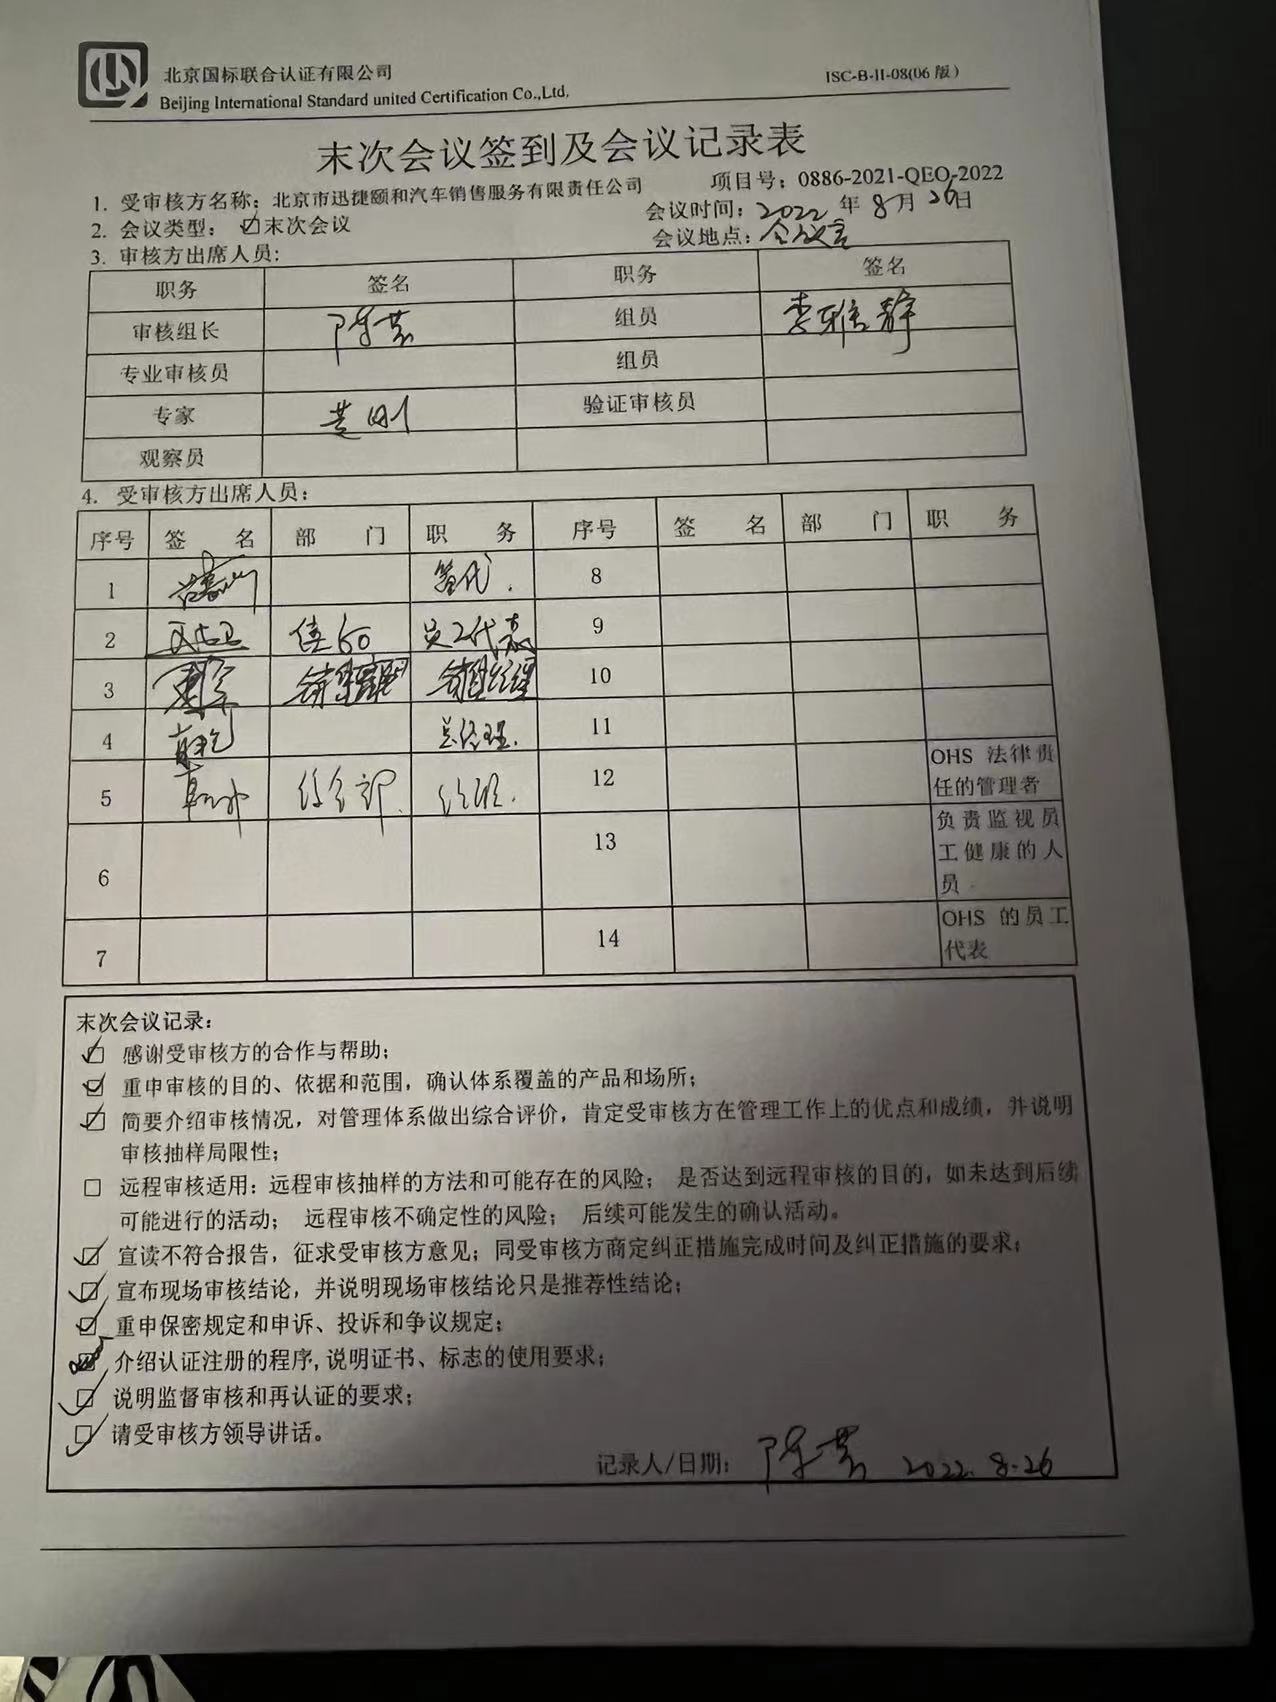 北京国标联合认证有限公司
Beijing International Standard united Certification Co.,Ltd.
ISC-B-II-08(06版)
末次会议签到及会议记录表
1. 受审核方名称：北京市迅捷颐和汽车销售服务有限责任公司
项目号：0886-2021-QEO-2022
2. 会议类型： ☑末次会议
会议时间：2022 年 8 月 26日
会议地点：会议室
3. 审核方出席人员：
职务 签名 职务 签名
审核组长 组员 李雅静
专业审核员 组员
专家 验证审核员
观察员
4. 受审核方出席人员：
序号 签 名 部 门 职 务 序号 签 名 部 门 职 务
1 管代. 8
2 员工代表 9
3 10
4 总经理. 11
5 综合部. 经理. 12 OHS 法律责任的管理者
6 13 负责监视员工健康的人员
7 14 OHS 的员工代表
末次会议记录：
☑ 感谢受审核方的合作与帮助；
☑ 重申审核的目的、依据和范围，确认体系覆盖的产品和场所；
☑ 简要介绍审核情况，对管理体系做出综合评价，肯定受审核方在管理工作上的优点和成绩，并说明
审核抽样局限性；
□ 远程审核适用：远程审核抽样的方法和可能存在的风险； 是否达到远程审核的目的，如未达到后续
可能进行的活动； 远程审核不确定性的风险； 后续可能发生的确认活动。
☑ 宣读不符合报告，征求受审核方意见；同受审核方商定纠正措施完成时间及纠正措施的要求；
☑ 宣布现场审核结论，并说明现场审核结论只是推荐性结论；
☑ 重申保密规定和申诉、投诉和争议规定；
☑ 介绍认证注册的程序,说明证书、标志的使用要求；
☑ 说明监督审核和再认证的要求；
☑ 请受审核方领导讲话。
记录人/日期： 2022.8.26